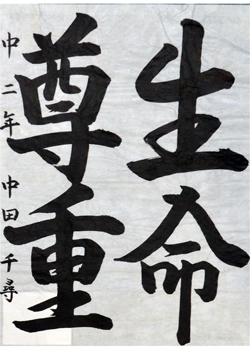 生命
尊重
中二年 中田千尋